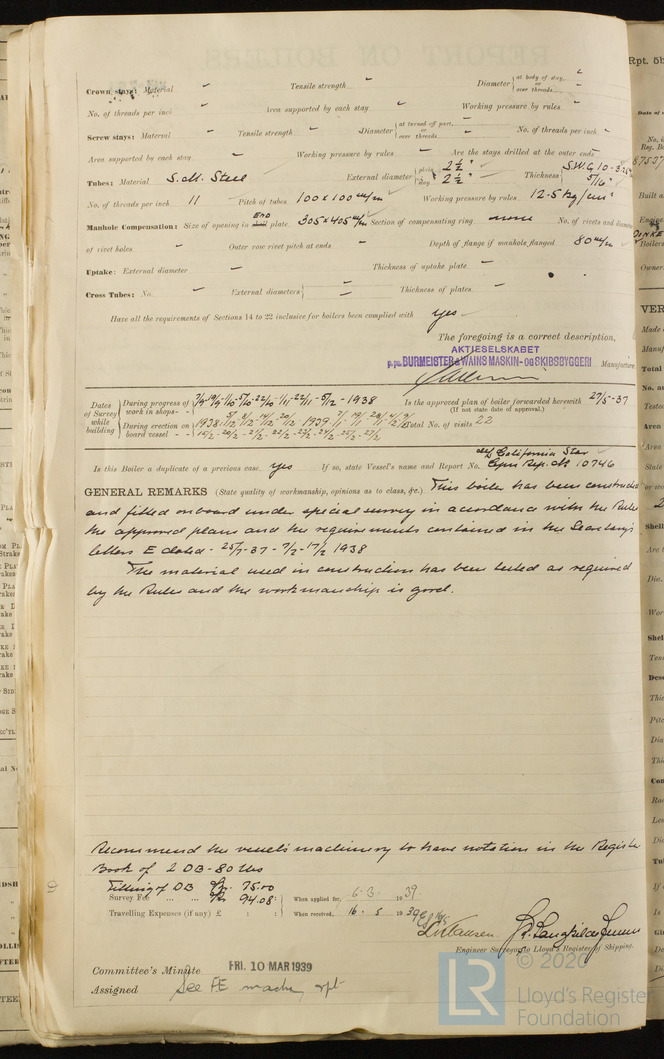 Crown stays: Material - Tensile strength - Diameter { at body of stay, or over threads - -
No. of threads per inch - Area supported by each stay - Working pressure by rules -
Screw stays: Material - Tensile strength - Diameter { at turned off part, or over threads - No. of threads per inch -
Area supported by each stay - Working pressure by rules - Are the stays drilled at the outer ends -
Tubes: Material S.M. Steel External diameter { plain 2½" stay 2½" Thickness { S.W.G. 10 - 3.25 5/16"
No. of threads per inch 11 Pitch of tubes 100 x 100 m/m Working pressure by rules 12.5 kg/cm²
Manhole Compensation: Size of opening in End plate 305 x 405 m/m Section of compensating ring none No. of rivets and diameter
of rivet holes - Outer row rivet pitch at ends - Depth of flange if manhole flanged 80 m/m
Uptake: External diameter - Thickness of uptake plate -
Cross Tubes: No. - External diameters { - - Thickness of plates -
Have all the requirements of Sections 14 to 22 inclusive for boilers been complied with yes
The foregoing is a correct description,
AKTIESELSKABET
p.pa. BURMEISTER & WAINS MASKIN- OG SKIBSBYGGERI Manufacturer
Dates of Survey while building { During progress of work in shops - - 7/9 - 19/9 - 1/10 - 5/10 - 22/10 - 1/11 - 22/11 - 5/12 - 1938 Is the approved plan of boiler forwarded herewith 27/5-37
(If not state date of approval.)
During erection on board vessel - - Total No. of visits 22
Is this Boiler a duplicate of a previous case yes If so, state Vessel's name and Report No. California Star
Cpn Rep. No 10746
GENERAL REMARKS (State quality of workmanship, opinions as to class, &c.) This boiler has been constructed
and fitted onboard under special survey in accordance with the Rules
the approved plans and the requirements contained in the Secretary's
letters E dated - 25/5-37 - 7/2 - 17/2 1938
The material used in construction has been tested as required
by the Rules and the workmanship is good.
Recommend the vessel's machinery to have notation in the Register
Book of 2 DB - 80 lbs
Fitting of DB Kr. 75.00
Survey Fee ... ... Kr. 94.08 When applied for, 6.3. 1939.
Travelling Expenses (if any) £ : : When received, 16.5 1939
Engineer Surveyor to Lloyd's Register of Shipping.
Committee's Minute FRI. 10 MAR 1939
Assigned See FE machy rpt
© 2020
LR Lloyd's Register
Foundation